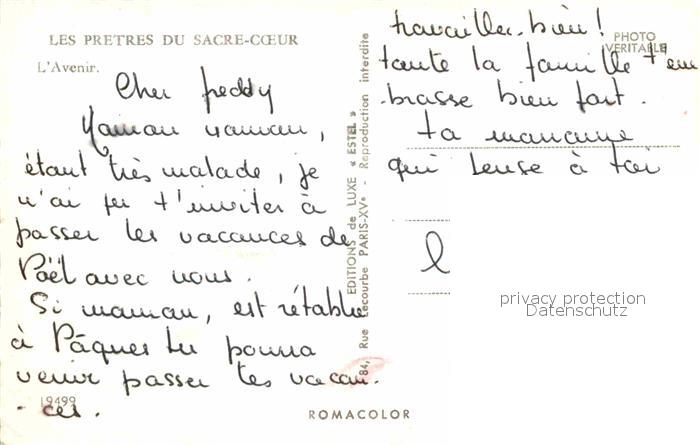 LES PRETRES DU SACRE-CŒUR
L'Avenir.
Cher freddy
maman,
étant très malade, je
n'ai pu t'inviter à
passer les vacances de
Noël avec nous.
Si maman, est rétablie
à Pâques tu pourra
venir passer tes vacan-
-ces.
19499
EDITIONS de LUXE « ESTEL »
84, Rue Lecourbe PARIS-XVe - Reproduction interdite
PHOTO
VERITABLE
travailles-bien!
toute la famille t'em
-brasse bien fort.
ta marraine
qui pense à toi
privacy protection
Datenschutz
ROMACOLOR